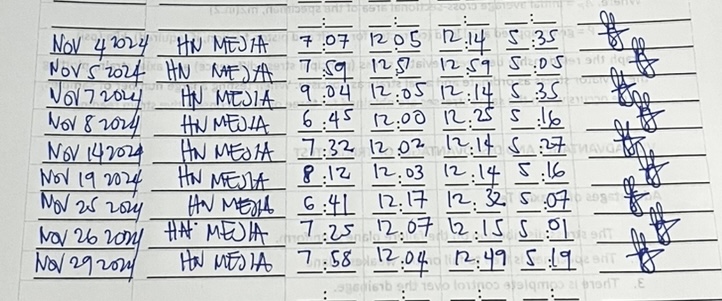 Nov 4 2024 HN MEDIA 7:07 12:05 12:14 5:35
Nov 5 2024 HN MEDIA 7:59 12:51 12:59 5:05
Nov 7 2024 HN MEDIA 9:04 12:05 12:14 5:35
Nov 8 2024 HN MEDIA 6:45 12:00 12:25 5:16
Nov 14 2024 HN MEDIA 7:32 12:02 12:14 5:27
Nov 19 2024 HN MEDIA 8:12 12:03 12:14 5:16
Nov 25 2024 HN MEDIA 6:41 12:17 12:32 5:07
Nov 26 2024 HN MEDIA 7:25 12:07 12:15 5:01
Nov 29 2024 HN MEDIA 7:58 12:04 12:49 5:19